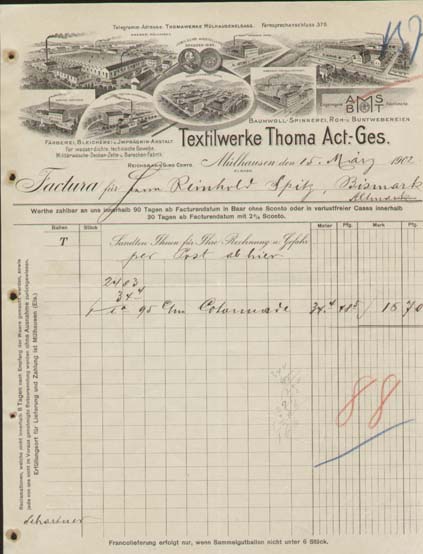 Telegramm-Adresse: THOMAWERKE MÜLHAUSENELSASS. Fernsprechanschluss 375
137
AMS
BMT
BAUMWOLL-SPINNEREI, ROH- u. BUNTWEBEREIEN
FÄRBEREI, BLEICHEREI u. IMPRÄGNIR-ANSTALT
für wasserdichte, technische Gewebe,
Militärwäsche-Decken-Zelte- u. Baracken-Fabrik.
REICHSBANK GIRO CONTO.
Textilwerke Thoma Act.-Ges.
Mülhausen den 15. März 1902
ELSASS
Factura für Herrn Reinhold Spitz, Bismark
Altmark
Werthe zahlbar an uns innerhalb 90 Tagen ab Facturendatum in Baar ohne Sconto oder in verlustfreier Cassa innerhalb
30 Tagen ab Facturendatum mit 2% Sconto.
Ballen Stück Meter Pfg. Mark Pfg.
T Sandten Ihnen für Ihre Rechnung u. Gefahr
per Post ab hier.
2403
34⁴
95 Ctm Cotonnade 34.⁴ 48⁵ 16 70
88
Reclamationen, welche nicht innerhalb 8 Tagen nach Empfang der Waare gemacht werden, sowie
jede von uns nicht im Voraus genehmigte Retoursendung werden ohne Ausnahme zurückgewiesen.
Erfüllungsort für Lieferung und Zahlung ist Mülhausen (Els).
Francolieferung erfolgt nur, wenn Sammelgutballen nicht unter 6 Stück.